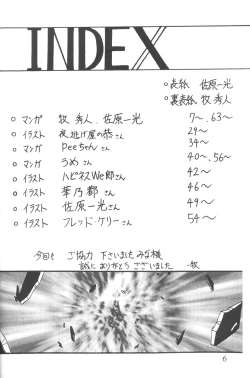 INDEX
○表紙 佐原一光
○裏表紙 牧秀人
○ マンガ 牧 秀人、佐原一光 7〜、63〜
○ イラスト 夜逃げ屋の恭さん 29〜
○ マンガ Peeちゃん 34〜
○ マンガ うめさん 40〜、56〜
○ イラスト ハピネスWe郎さん 42〜
○ イラスト 華乃都さん 46〜
○ イラスト 佐原一光さん 49〜
○ イラスト フレッド・ケリーさん 54〜
今回も ご協力 下さいました みな様
誠に ありがとう ございました -牧
6